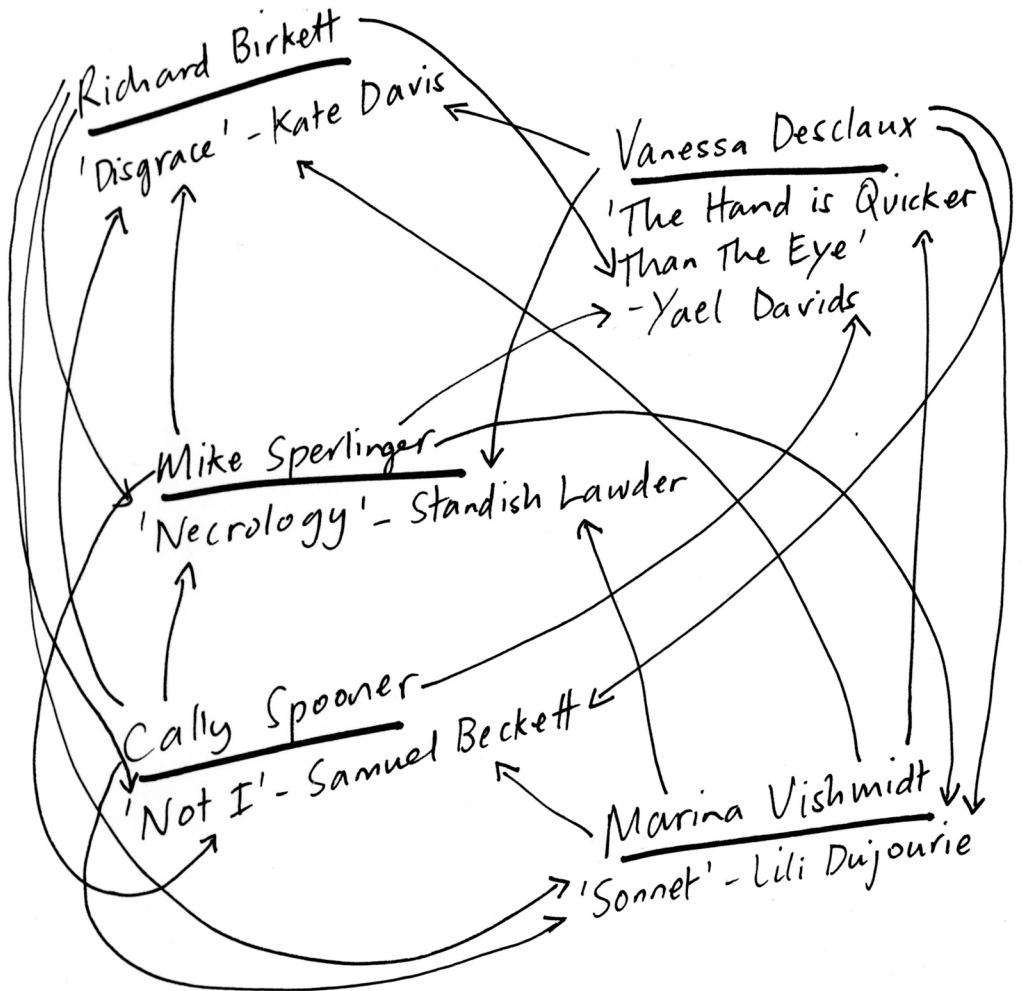 Richard Birkett
'Disgrace' - Kate Davis
Vanessa Desclaux
'The Hand is Quicker
Than The Eye'
- Yael Davids
Mike Sperlinger
'Necrology' - Standish Lawder
Cally Spooner
'Not I' - Samuel Beckett
Marina Vishmidt
'Sonnet' - Lili Dujourie